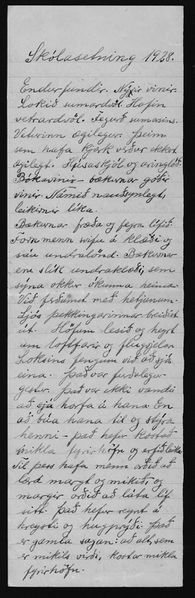 Skólasetning 1928.
Endurfundir. Nýir vinir.
Lokið sumardvöl. Hafin
vetrardvöl. Fegurð sumarsins.
Veturinn ægilegur þeim
sem hafa kjörk viður ekkert
ægilegt. Húsaskjól og
Bókavinir - bækurnar góðir
vinir. Námið nauðsynlegt,
leikirnir líka.
Bækurnar fræða og fegra lífið.
menn vefja í klæði og
sáu undralönd. Bækurnar
eru slík undraklæði, sem
sýna okkur ókunna heima.
Við fráfund með hetjunum.
Ljós þekkingarinnar breiðist
út. Höfum lesið og heyrt
um loftför og flugvélar.
Loksins fengum við að sjá
eina. Það var furðulegur
gestur. Það var ekki vandi
að sjá horfa á hana. En
að búa hana til og stýra
henni - það hefur kostað
mikla fyrirhöfn og erfiði
Til þess hafa menn orðið að
læra margt og mikið og
margir orðið að láta líf
sitt. það hefur reynt á
hreysti og hugprýði. Það
er gamla sagan: að allt, sem
er mikils virði, kostar mikla
fyrirhöfn.